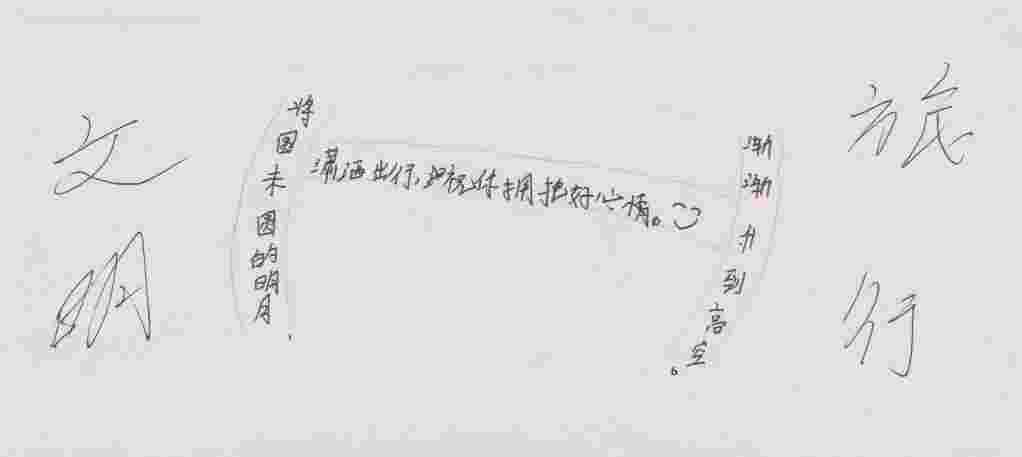 文明
将圆未圆的明月,
潇洒出行,祝你拥抱好心情。
渐渐升到高空。
旅行